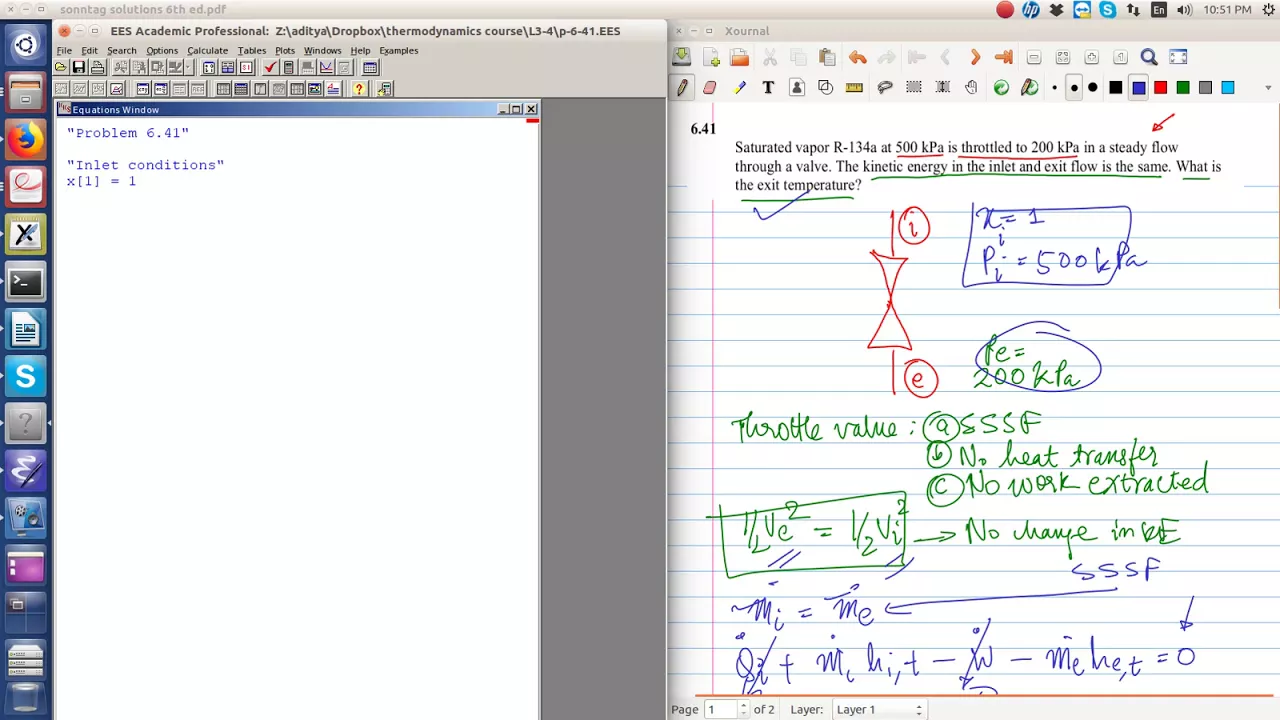 sonntag solutions 6th ed.pdf
En
10:51 PM
EES Academic Professional: Z:\aditya\Dropbox\thermodynamics course\L3-4\p-6-41.EES
File Edit Search Options Calculate Tables Plots Windows Help Examples
Equations Window
"Problem 6.41"
"Inlet conditions"
x[1] = 1
Xournal
6.41
Saturated vapor R-134a at 500 kPa is throttled to 200 kPa in a steady flow
through a valve. The kinetic energy in the inlet and exit flow is the same. What is
the exit temperature?
i
xi = 1
Pi = 500 kPa
Pe =
200 kPa
e
Throttle value : a SSSF
b No heat transfer
c No work extracted
1/2 Ve² = 1/2 Vi² → No change in KE
SSSF
ṁi = ṁe
Q̇ + ṁi hi,t − Ẇ − ṁe he,t = 0
Page 1 of 2 Layer: Layer 1